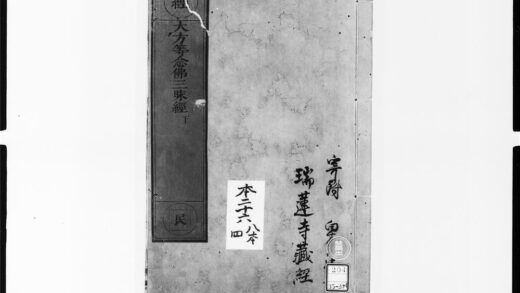 經
大方等念佛三昧經 下
民
寄附
瑞蓮寺藏經
本二十六
八本
四
204